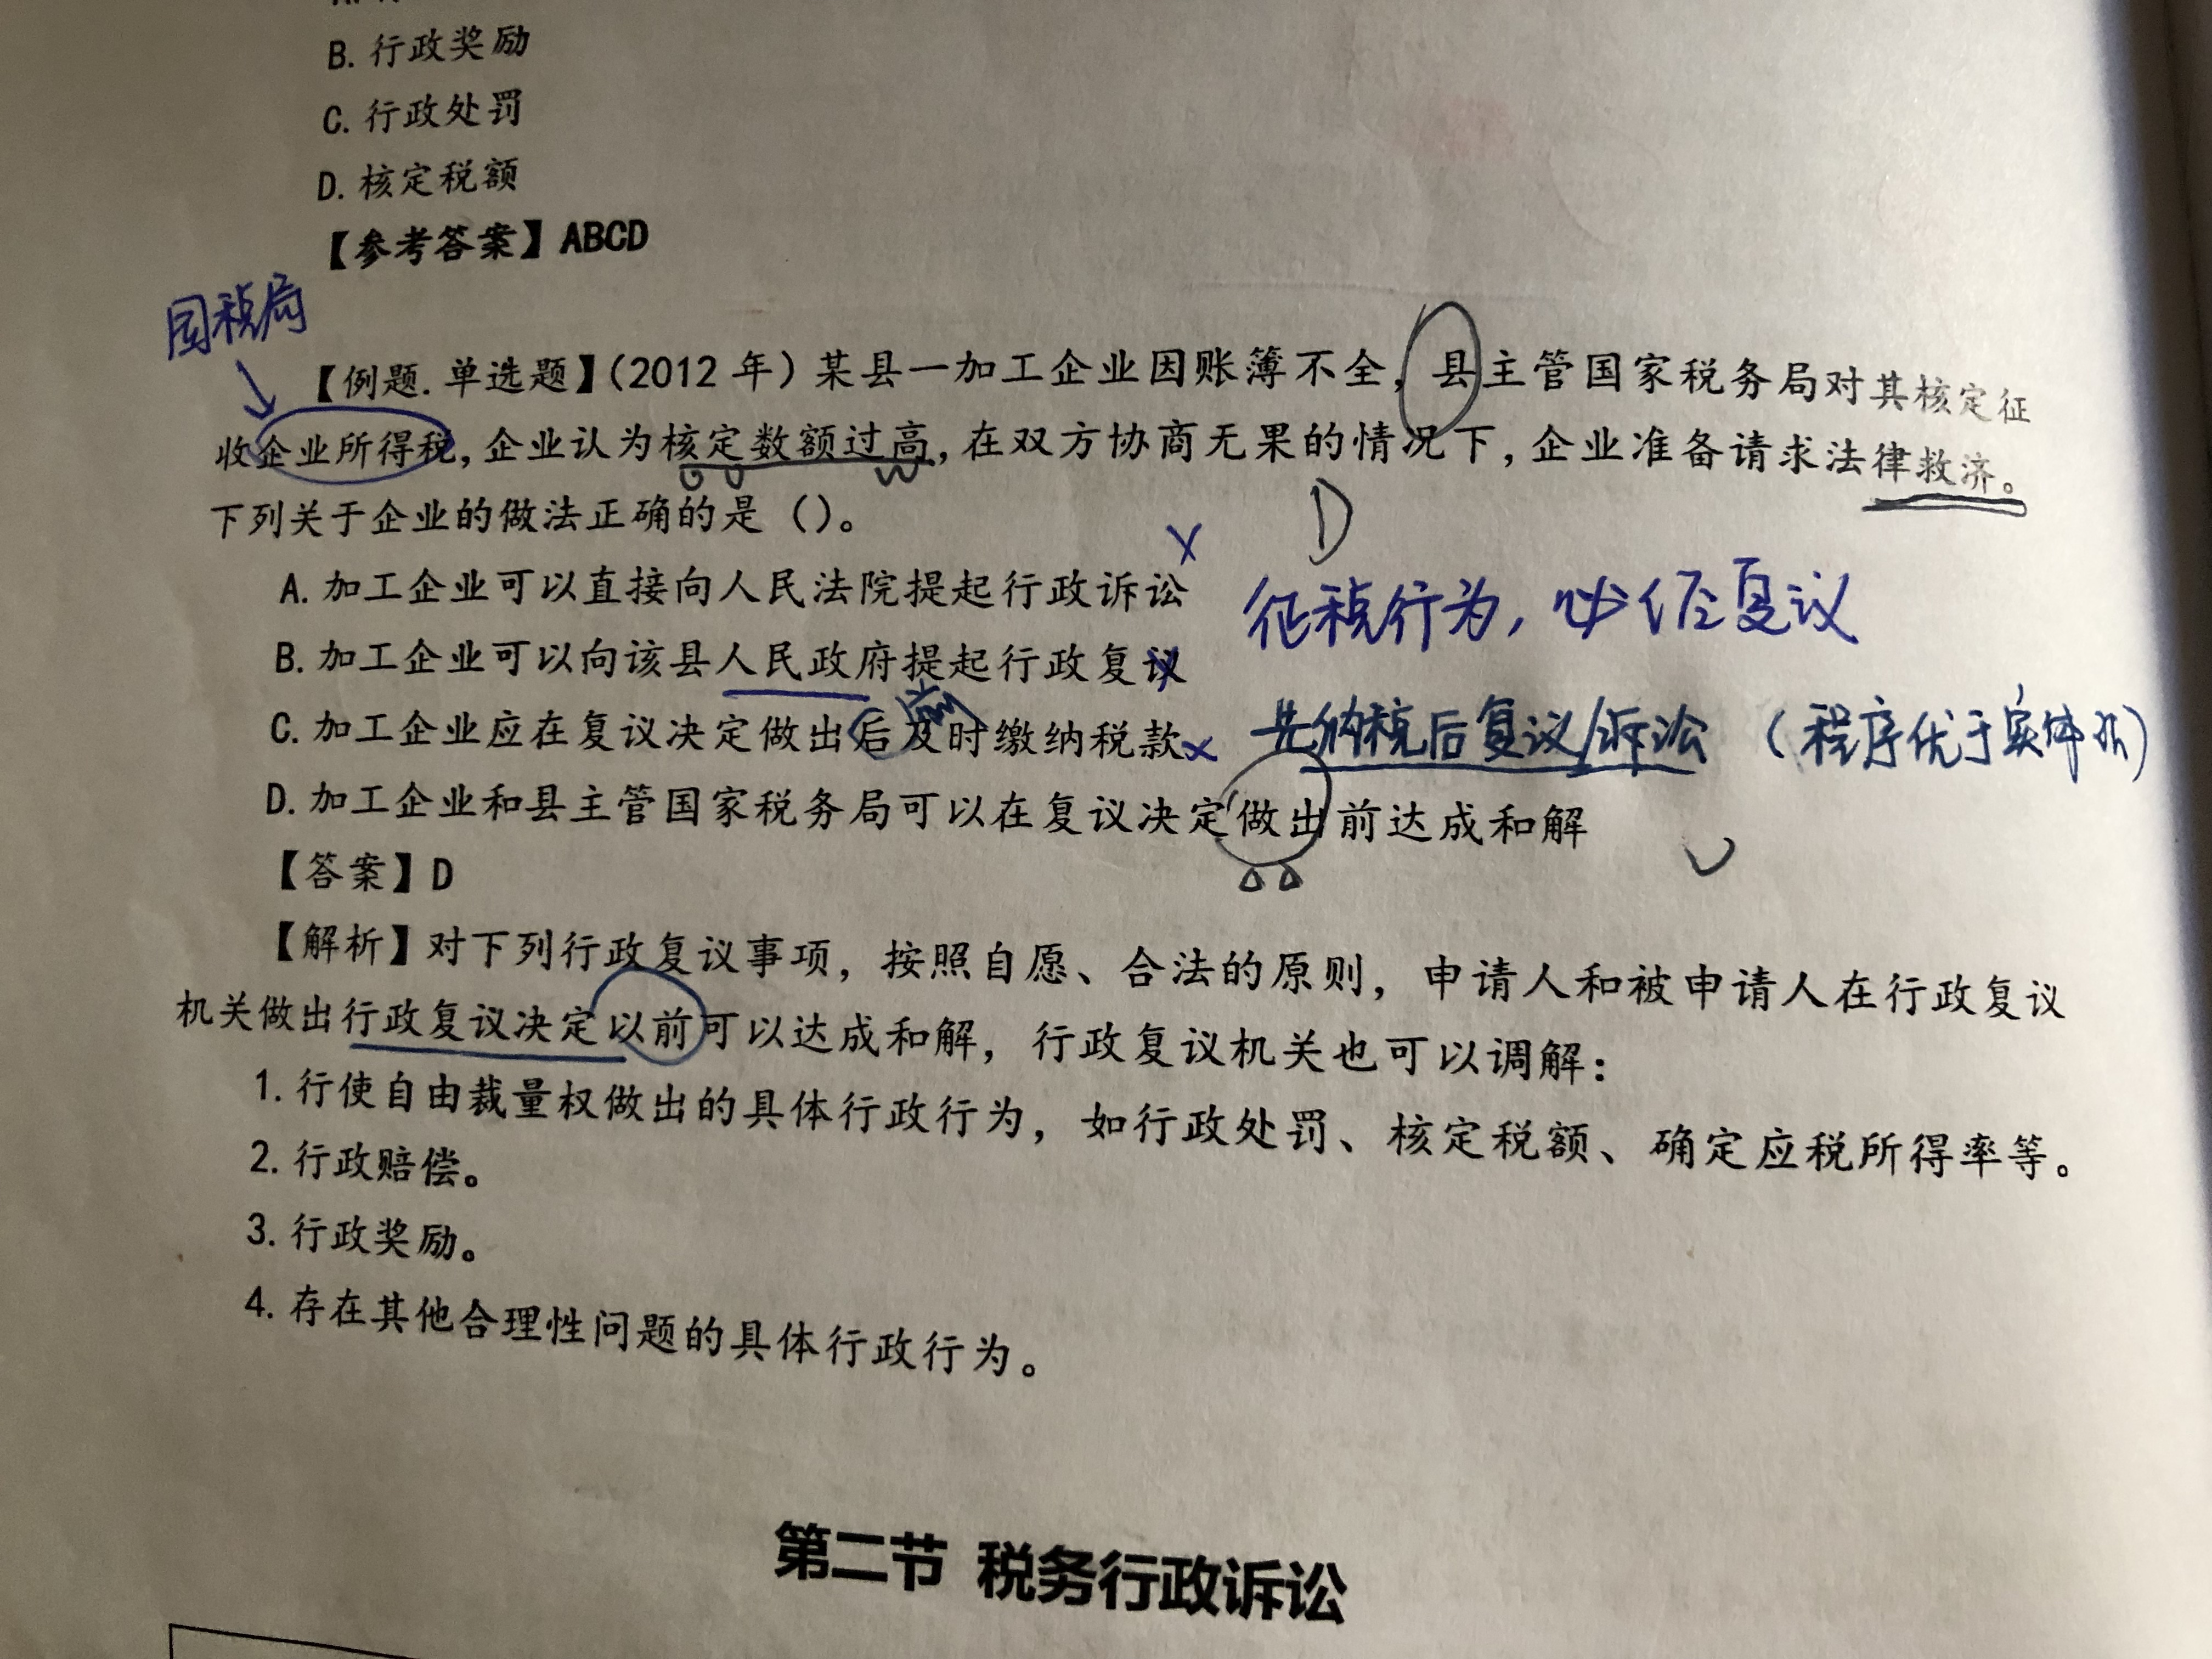 B. 行政奖励
C. 行政处罚
D. 核定税额
【参考答案】ABCD
国税局
【例题.单选题】（2012 年）某县一加工企业因账簿不全，县主管国家税务局对其核定征
收企业所得税，企业认为核定数额过高，在双方协商无果的情况下，企业准备请求法律救济。
下列关于企业的做法正确的是（）。
D
A. 加工企业可以直接向人民法院提起行政诉讼
征税行为，必经复议
B. 加工企业可以向该县人民政府提起行政复议
C. 加工企业应在复议决定做出后及时缴纳税款
前
先纳税后复议/诉讼（程序优于实体法）
D. 加工企业和县主管国家税务局可以在复议决定做出前达成和解
【答案】D
【解析】对下列行政复议事项，按照自愿、合法的原则，申请人和被申请人在行政复议
机关做出行政复议决定以前可以达成和解，行政复议机关也可以调解：
1. 行使自由裁量权做出的具体行政行为，如行政处罚、核定税额、确定应税所得率等。
2. 行政赔偿。
3. 行政奖励。
4. 存在其他合理性问题的具体行政行为。
第二节 税务行政诉讼